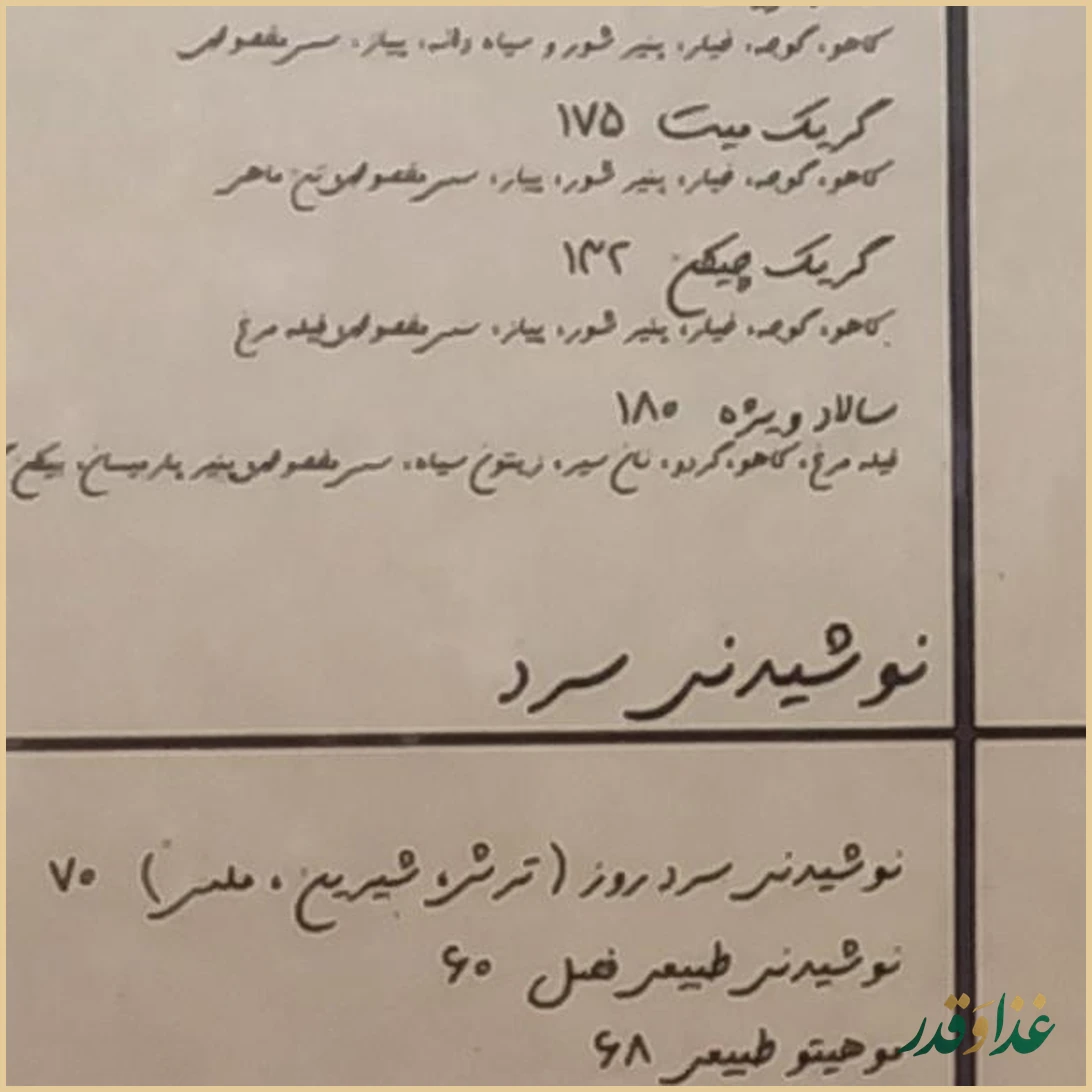 کاهو، گوجه، خیار، پنیر شور و سیاه دانه، پیاز، سس مخصوص
گریک میت ۱۷۵
کاهو، گوجه، خیار، پنیر شور، پیاز، سس مخصوص تن ماهی
گریک چیکن ۱۴۲
کاهو، گوجه، خیار، پنیر شور، پیاز، سس مخصوص فیله مرغ
سالاد ویژه ۱۸۰
فیله مرغ، کاهو، گردو، نان سیر، زیتون سیاه، سس مخصوص پنیر پارمیسان، بیکن
نوشیدنی سرد
نوشیدنی سرد روز (ترش، شیرین، ملس) ۷۰
نوشیدنی طبیعی فصل ۶۰
موهیتو طبیعی ۶۸
غذا و قدر